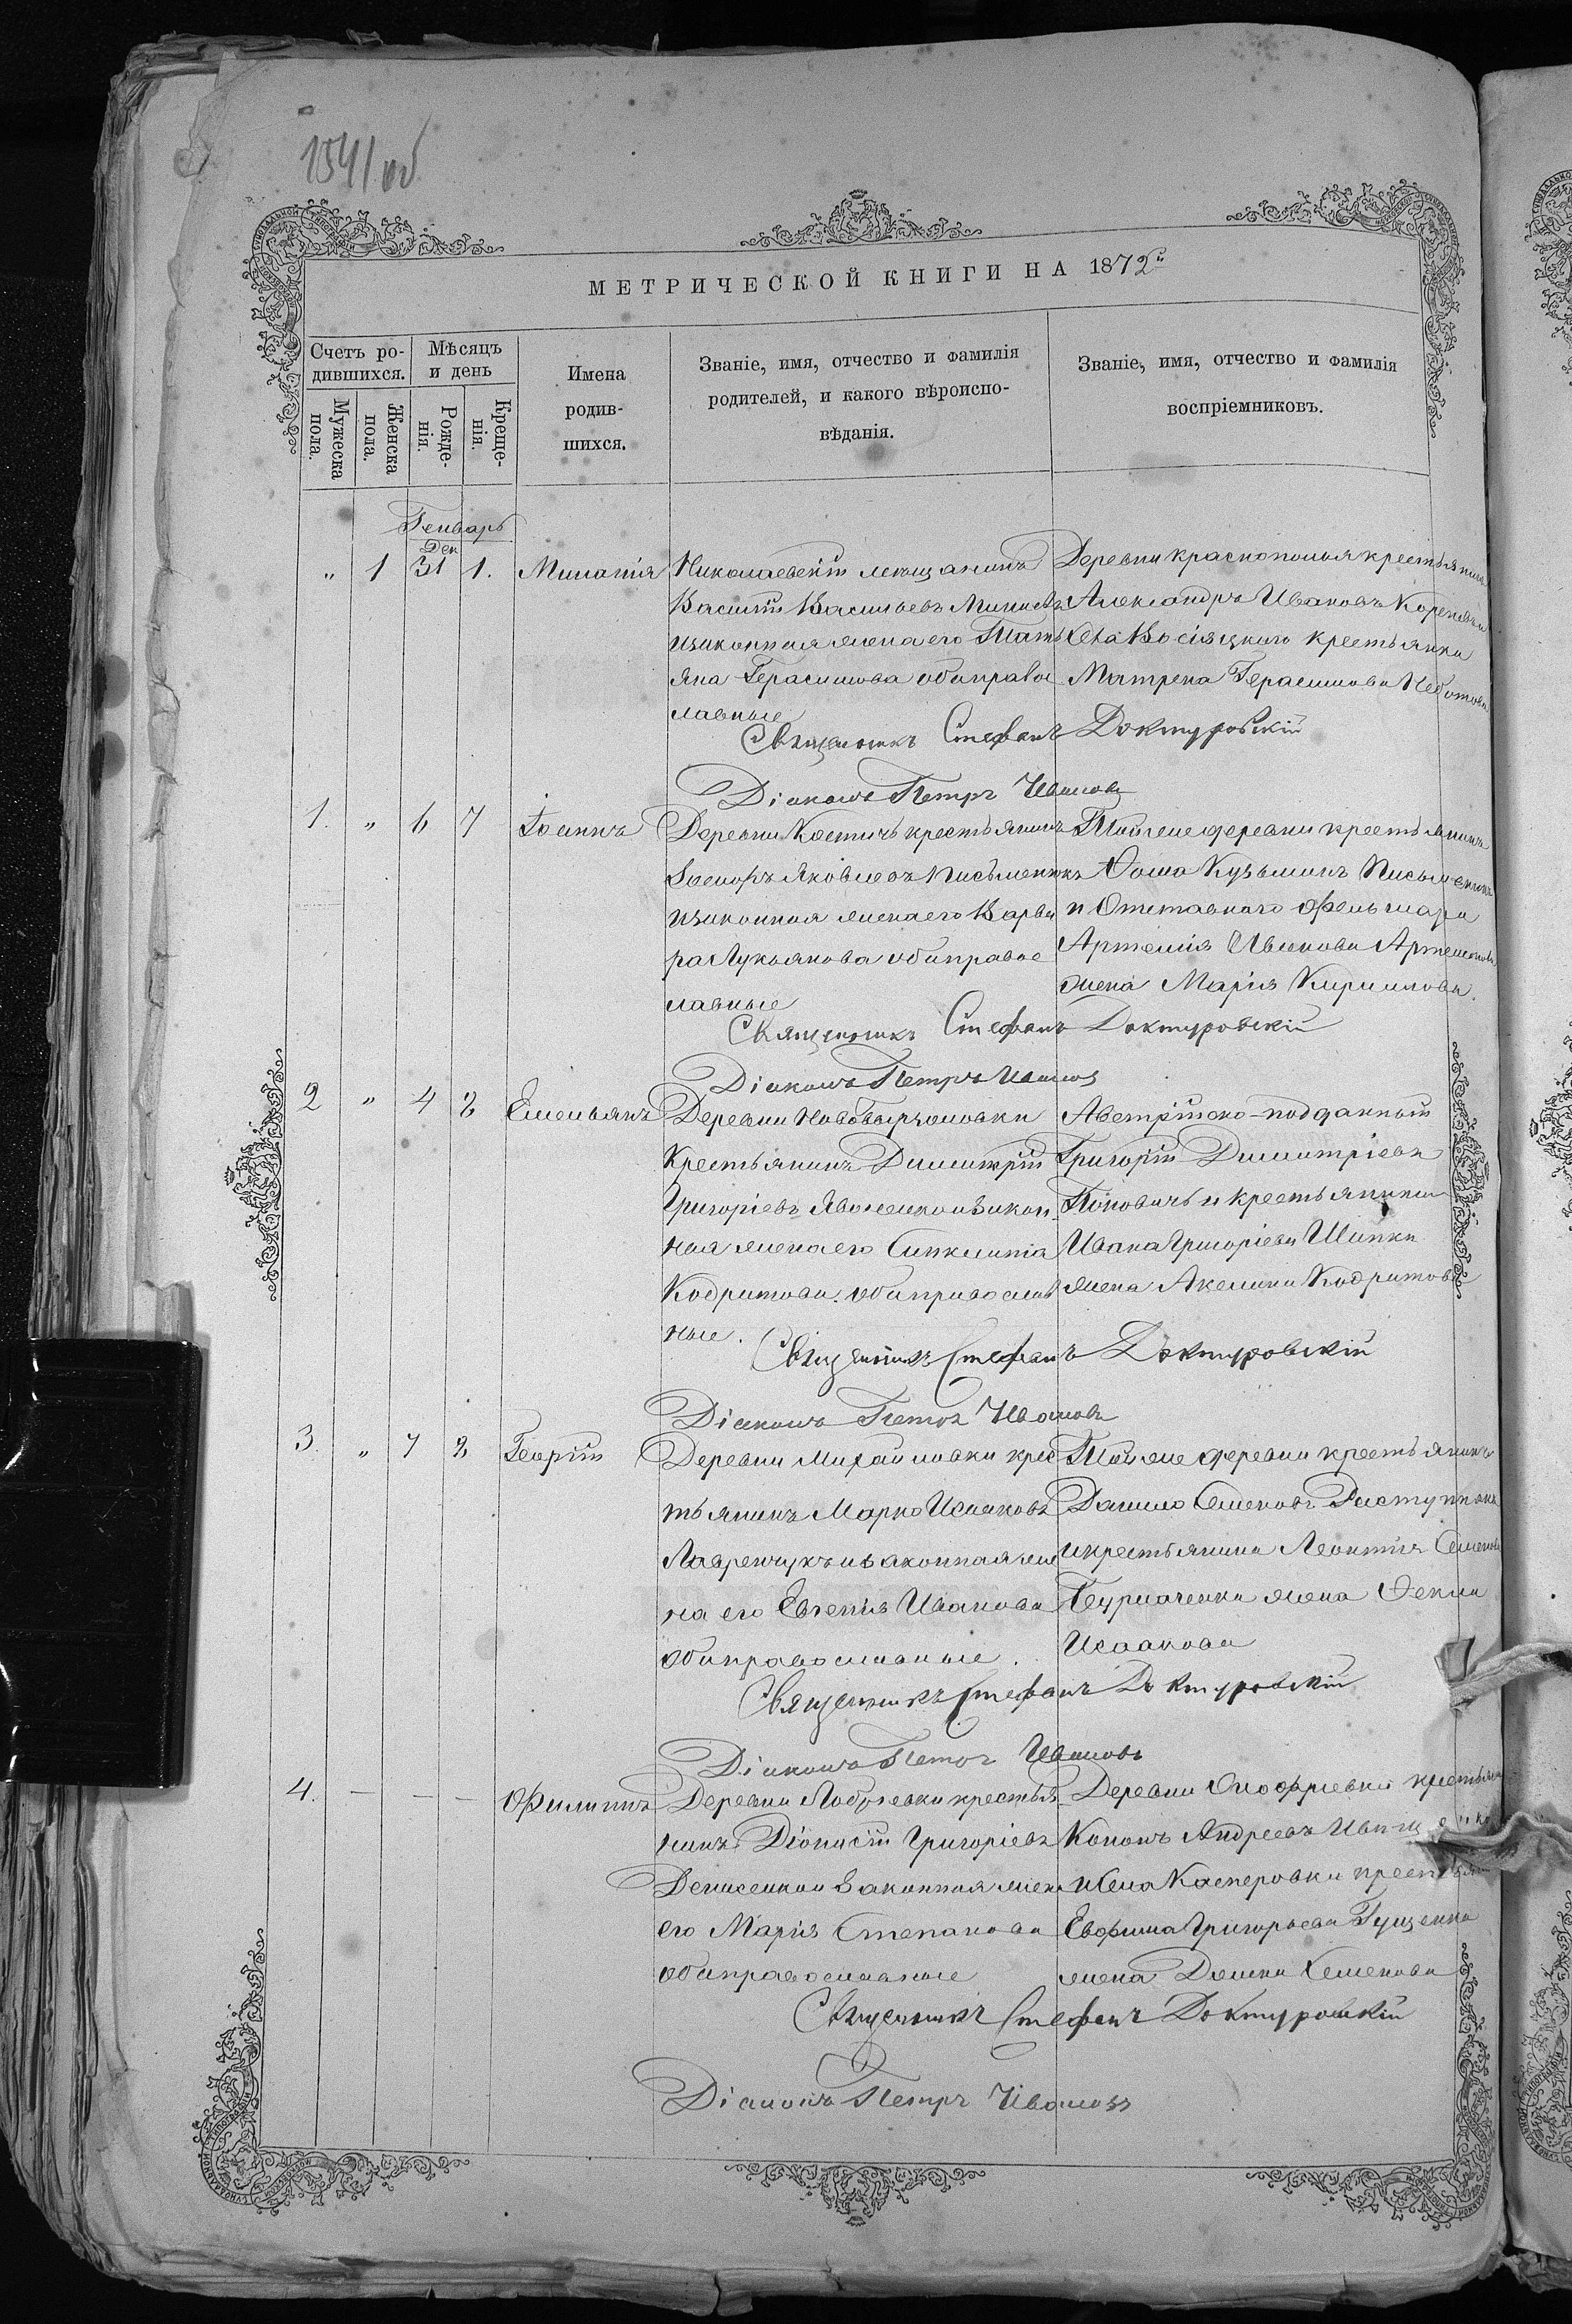 1541 об
МЕТРИЧЕСКОЙ КНИГИ НА 1872й
Счетъ ро-
дившихся.
Мѣсяцъ
и день
Мужеска
пола.
Женска
пола.
Рожде-
нія.
Креще-
нія.
Имена
родив-
шихся.
Званіе, имя, отчество и фамилія
родителей, и какого вѣроиспо-
вѣданія.
Званіе, имя, отчество и фамилія
воспріемниковъ.
Генварь
Дек
" 1 31 1. Миланія
Николаевскій мещанинъ
Василій Васильевъ
изаконная жена его Тать
яна Герасимова обаправос
лавные
Деревни краснополья крестьянинъ
Александръ Ивановъ
крестьянка
Матрена Герасимова
Священникъ Стефанъ Доктуровскій
Діаконъ Петръ Ивановъ
1. " 6 7 Іоаннъ
Деревни Костичь крестьянинъ
Іосифъ Яковлевъ Письменюкъ
изаконная жена его Варва
ра Лукьянова обаправос
лавные
Тойже деревни крестьянинъ
Фома Кузьминъ
и Отставнаго Фельшара
Артемія Иванова
жена Марія Кирилова.
Священникъ Стефанъ Доктуровскій
Діаконъ Петръ Ивановъ
2 " 4 8 Емельянъ
Деревни
Крестьянинъ Димитрій
Григоріевъ изакон
ная жена его Синклитія
Кодратова. обаправослав
ные.
Австрійско-подданный
Григорій Димитріевъ
Поповичь и крестьянина
Ивана Григоріева Шипки
жена Акелина Кодратова
Священникъ Стефанъ Доктуровскій
Діаконъ Петръ Ивановъ
3. " 7 8 Георгій
Деревни Михайловки крес
тьянинъ Марко Исааковъ
Лавренчукъ изаконная же
на его Евгенія Иванова
обаправославные.
Тойже деревни крестьянинъ
Данило Семеновъ
икрестьянина Леонтія Семенова
жена Фекла
Исаакова
Священникъ Стефанъ Доктуровскій
Діаконъ Петръ Ивановъ
4. — — — Филиппъ
Деревни крестья
нинъ Діонисій Григоріевъ
Денисенко изаконная жена
его Марія Степанова
обаправославные
Деревни Онофріевки крестьянинъ
Кононъ Андреевъ
исела Касперовки крестьянина
Евфима Григорьева Гуценка
жена Домна Семенова
Священникъ Стефанъ Доктуровскій
Діаконъ Петръ Ивановъ